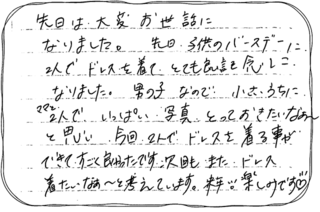 先日は大変お世話に
なりました。先日子供のバースデーに
2人でドレスを着て とても良い記念に
なりました。男の子なので 小さいうちに
ママと2人で いっぱい 写真 とっておきたいなぁ〜
と思い 今回 2人で ドレスを着る事が
できて すごく良かったです。次回も また ドレス
着たいなぁ〜と考えています。来年 楽しみです♡